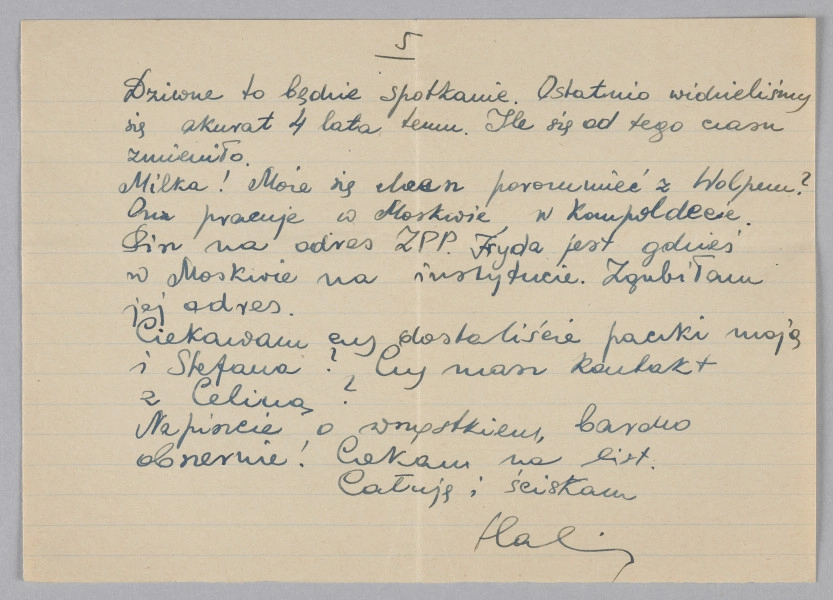 5
Dziwne to będzie spotkanie. Ostatnio widzieliśmy
się akurat 4 lata temu. Ile się od tego czasu
zmieniło.
Milka! Może się chcesz porozumieć z Wolpem?
Ona pracuje w Moskwie w Kompoldecie.
Pisz na adres ZPP. Fryda jest gdzieś
w Moskwie na instytucie. Zgubiłam
jej adres.
Ciekawam czy dostaliście paczki moją
i Stefana? Czy masz kontakt
z Celiną?
Napiszcie o wszystkiem, bardzo
obszernie! Czekam na list.
Całuję i ściskam